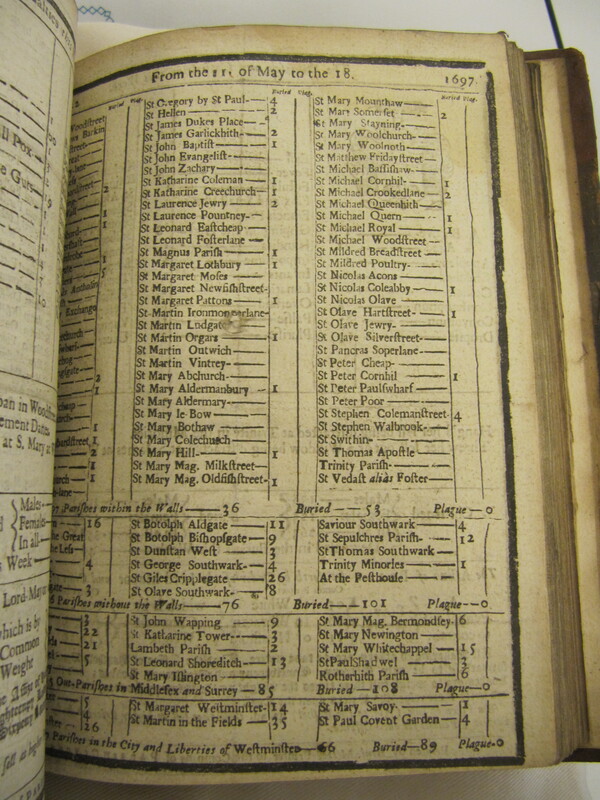 From the 11. of May to the 18. 1697.
Buried Plag. Buried Plag. Buried Plag.
St Gregory by St Paul 4
St Hellen 2
St James Dukes Place
St James Garlickhith 2
St John Baptist 1
St John Evangelist
St John Zachary
St Katharine Coleman 1
St Katharine Creechurch 1
St Laurence Jewry 2
St Laurence Pountney
St Leonard Eastcheap
St Leonard Fosterlane
St Magnus Parish 1
St Margaret Lothbury 1
St Margaret Moses
St Margaret Newfishstreet
St Margaret Pattons 1
St Martin Ironmongerlane
St Martin Ludgate
St Martin Orgars 1
St Martin Outwich
St Martin Vintrey
St Mary Abchurch
St Mary Aldermanbury 1
St Mary Aldermary
St Mary le Bow
St Mary Bothaw
St Mary Colechurch
St Mary Hill 1
St Mary Mag. Milkstreet
St Mary Mag. Oldfishstreet 1
St Mary Mounthaw
St Mary Somerset 2
St Mary Stayning
St Mary Woolchurch
St Mary Woolnoth
St Matthew Fridaystreet
St Michael Bassishaw
St Michael Cornhil 1
St Michael Crookedlane 2
St Michael Queenhith
St Michael Quern 1
St Michael Royal 1
St Michael Woodstreet
St Mildred Breadstreet
St Mildred Poultry
St Nicolas Acons
St Nicolas Coleabby 1
St Nicolas Olave
St Olave Hartstreet 1
St Olave Jewry
St Olave Silverstreet
St Pancras Soperlane
St Peter Cheap
St Peter Cornhil 1
St Peter Paulswharf
St Peter Poor
St Stephen Colemanstreet 4
St Stephen Walbrook
St Swithin
St Thomas Apostle
Trinity Parish
St Vedast alias Foster
Parishes within the Walls 36 Buried 53 Plague 0
St Botolph Aldgate 11
St Botolph Bishopsgate 9
St Dunstan West 3
St George Southwark 4
St Giles Cripplegate 26
St Olave Southwark 8
Saviour Southwark 4
St Sepulchres Parish 12
St Thomas Southwark
Trinity Minories 1
At the Pesthouse
Parishes without the Walls 76 Buried 101 Plague 0
St John Wapping 9
St Katharine Tower 3
Lambeth Parish 2
St Leonard Shoreditch 13
St Mary Islington
St Mary Mag. Bermondsey 6
St Mary Newington
St Mary Whitechappel 15
St Paul Shadwel 3
Rotherhith Parish 6
Out-Parishes in Middlesex and Surrey 85 Buried 108 Plague 0
St Margaret Westminster 14
St Martin in the Fields 35
St Mary Savoy 1
St Paul Covent Garden 4
Parishes in the City and Liberties of Westminster 66 Buried 89 Plague 0